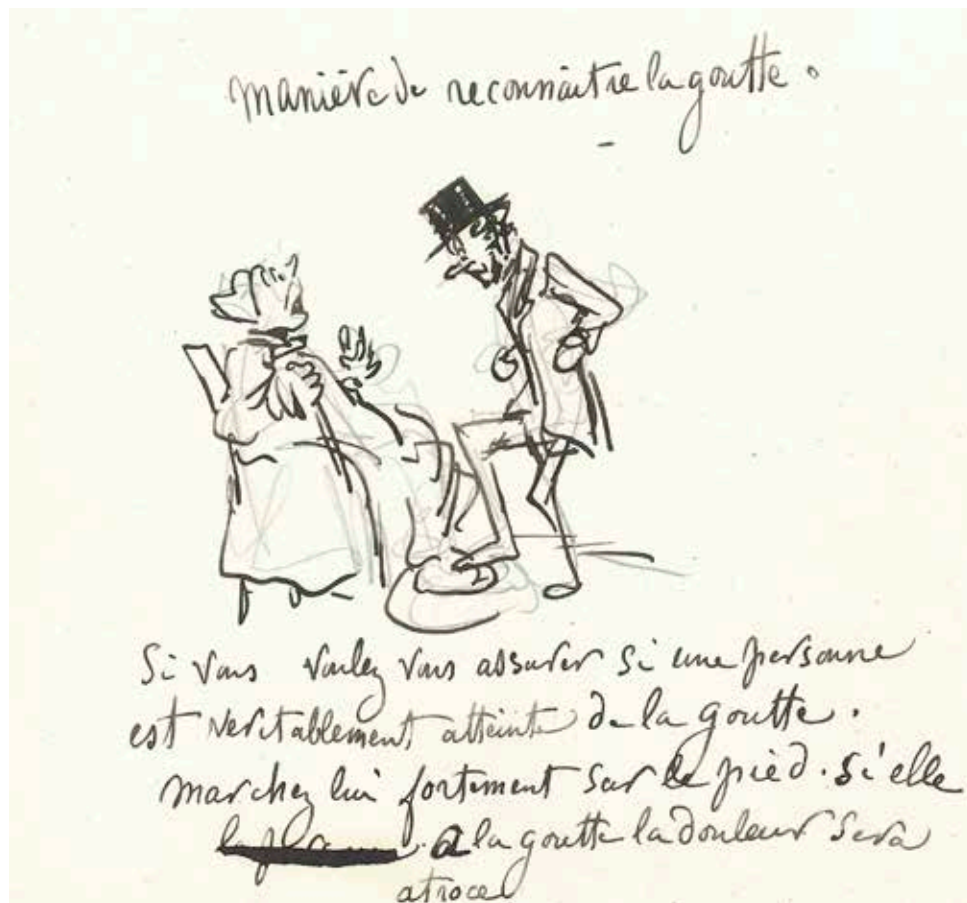 Manière de reconnaitre la goutte.
Si vous voulez vous assurer si une personne
est veritablement atteinte de la goutte.
Marchez lui fortement sur le pied. si elle
a la goutte la douleur sera
atroce